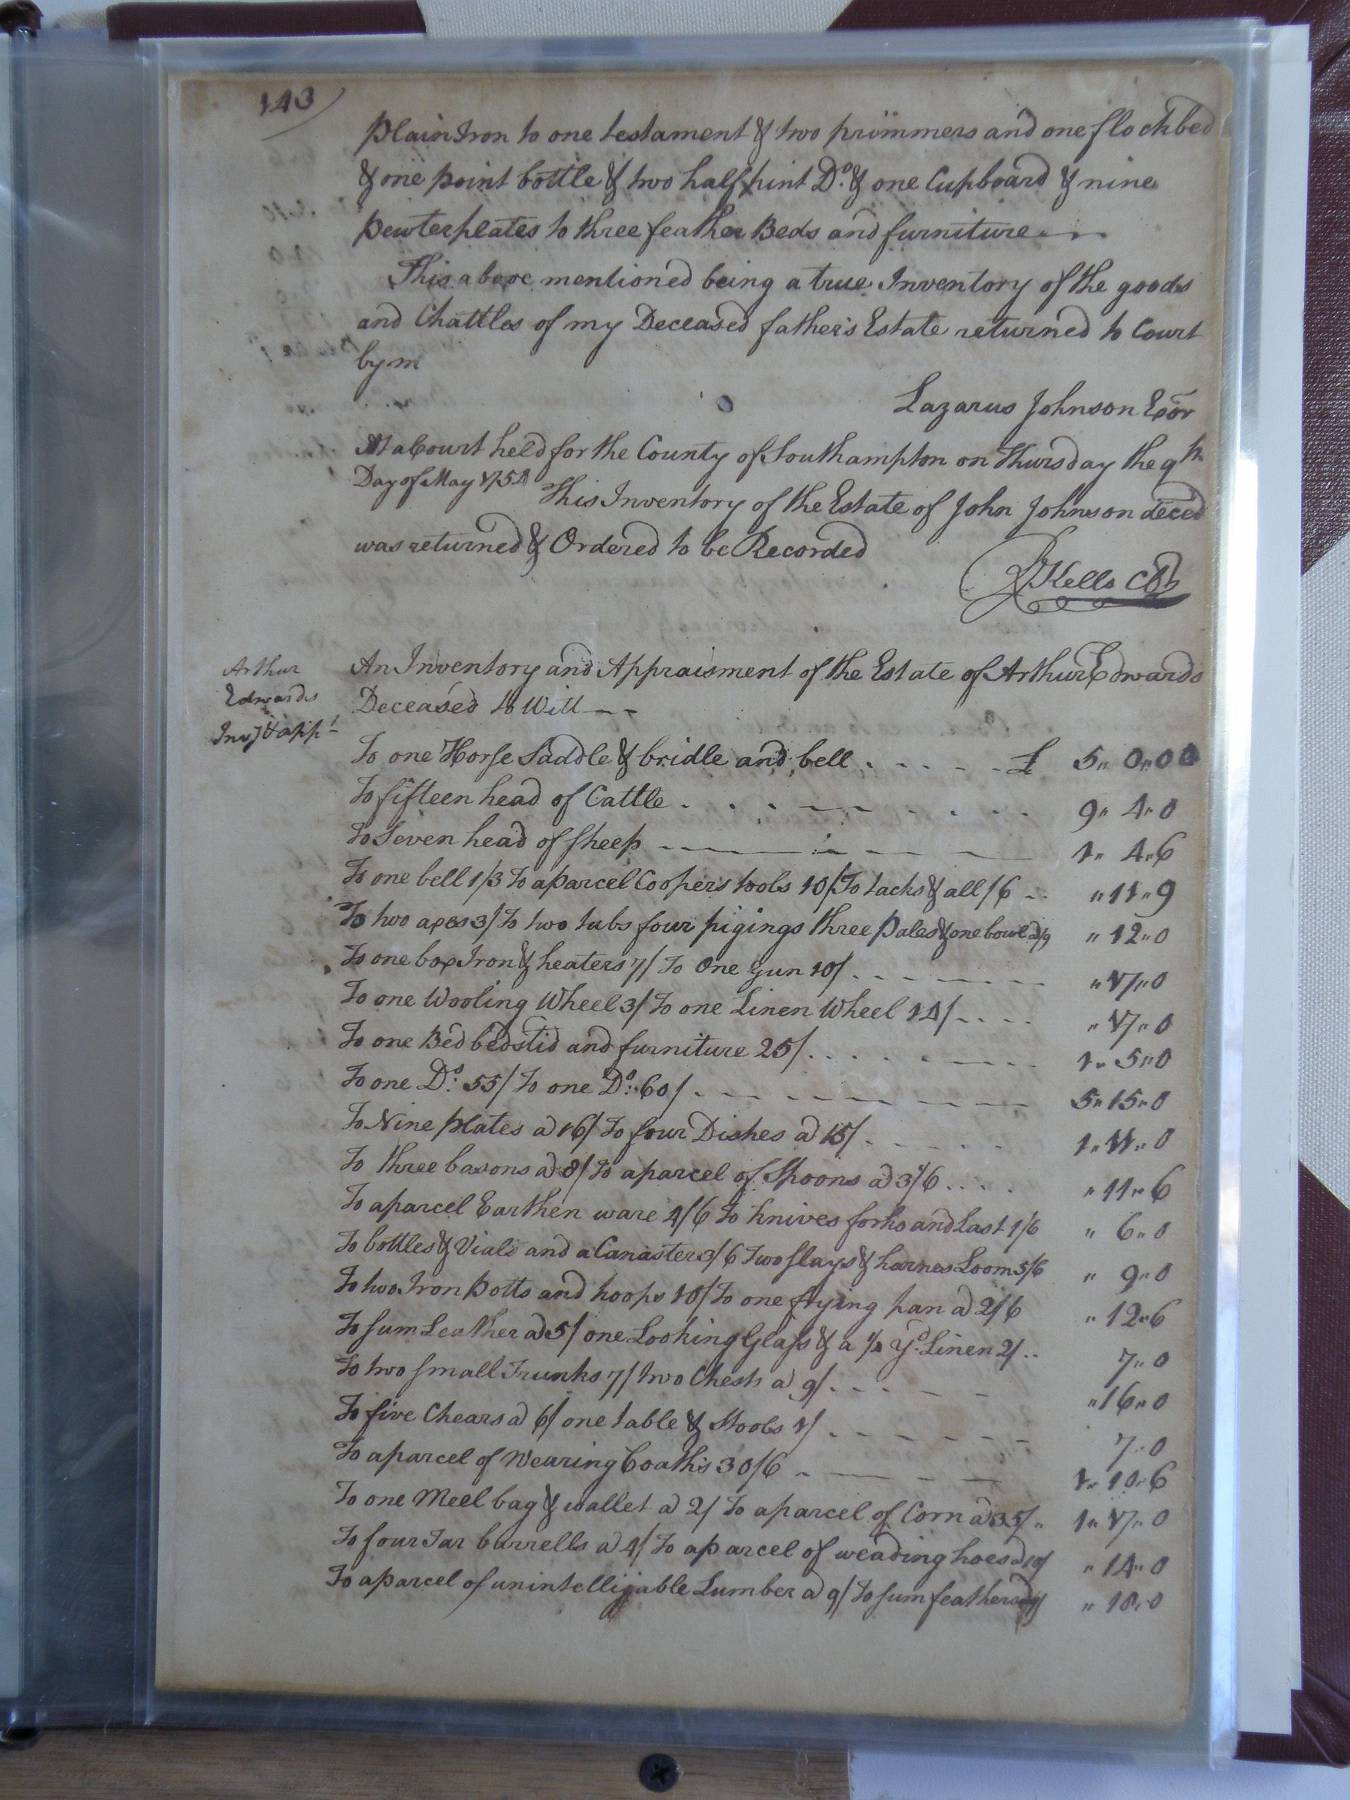 143
plain Iron to one testament & two primmers and one flockbed
& one point bottle & two half pint Do. & one Cupboard & nine
pewter plates to three feather Beds and furniture
This above mentioned being a true Inventory of the goods
and Chattles of my Deceased father's Estate returned to Court
by m
Lazarus Johnson Exor
At a Court held for the County of Southampton on Thursday the 9th
Day of May 1751
This Inventory of the Estate of John Johnson deced
was returned & Ordered to be Recorded
Kello
Arthur
Edwards
Inv & app t
An Inventory and Appraisment of the Estate of Arthur Edwards
Deceased to Witt
To one Horse Saddle & bridle and bell £ 5 " 0 " 0
To fifteen head of Cattle 9 " 4 " 0
To Seven head of Sheep 1 " 4 " 6
To one bell 1/3 To a parcel Coopers tools 10/ To tacks & all /6 " 11 " 9
To two axes 3/ To two tubs four pigings three pales & one bowl " 12 " 0
To one box Iron & heaters 7/ To One gun 10/ " 17 " 0
To one Wooling Wheel 3/ To one Linen Wheel 14/ " 17 " 0
To one Bed bedstid and furniture 25/ 1 " 5 " 0
To one Do. 55/ To one Do. 60/ 5 " 15 " 0
To Nine plates a 16/ To four Dishes a 15/ 1 " 11 " 0
To three basons a 8/ To a parcel of Spoons a 3/6 " 11 " 6
To a parcel Earthen ware 4/6 To knives forks and Last 1/6 " 6 " 0
To bottles & Vials and a Canaster 3/6 Two Slays & harnes Loom 5/6 " 9 " 0
To two Iron Potts and hoops 10/ To one frying pan a 2/6 " 12 " 6
To sum Leather a 5/ one Looking Glass & a yd. Linen 2/ 7 " 0
To two small Trunks 7/ two Chests a 9/ " 16 " 0
To five Chears a 6/ one table & Stools 1/ 7 " 0
To a parcel of Wearing Coaths 30/6 1 " 10 " 6
To one Meel bag & wallet a 2/ To a parcel of Corn a 35/ 1 " 17 " 0
To four Tar barrells a 4/ To a parcel of weading hoes a 10/ " 14 " 0
To a parcel of unintelligable Lumber a 9/ To sum feathers a 9/ " 18 " 0